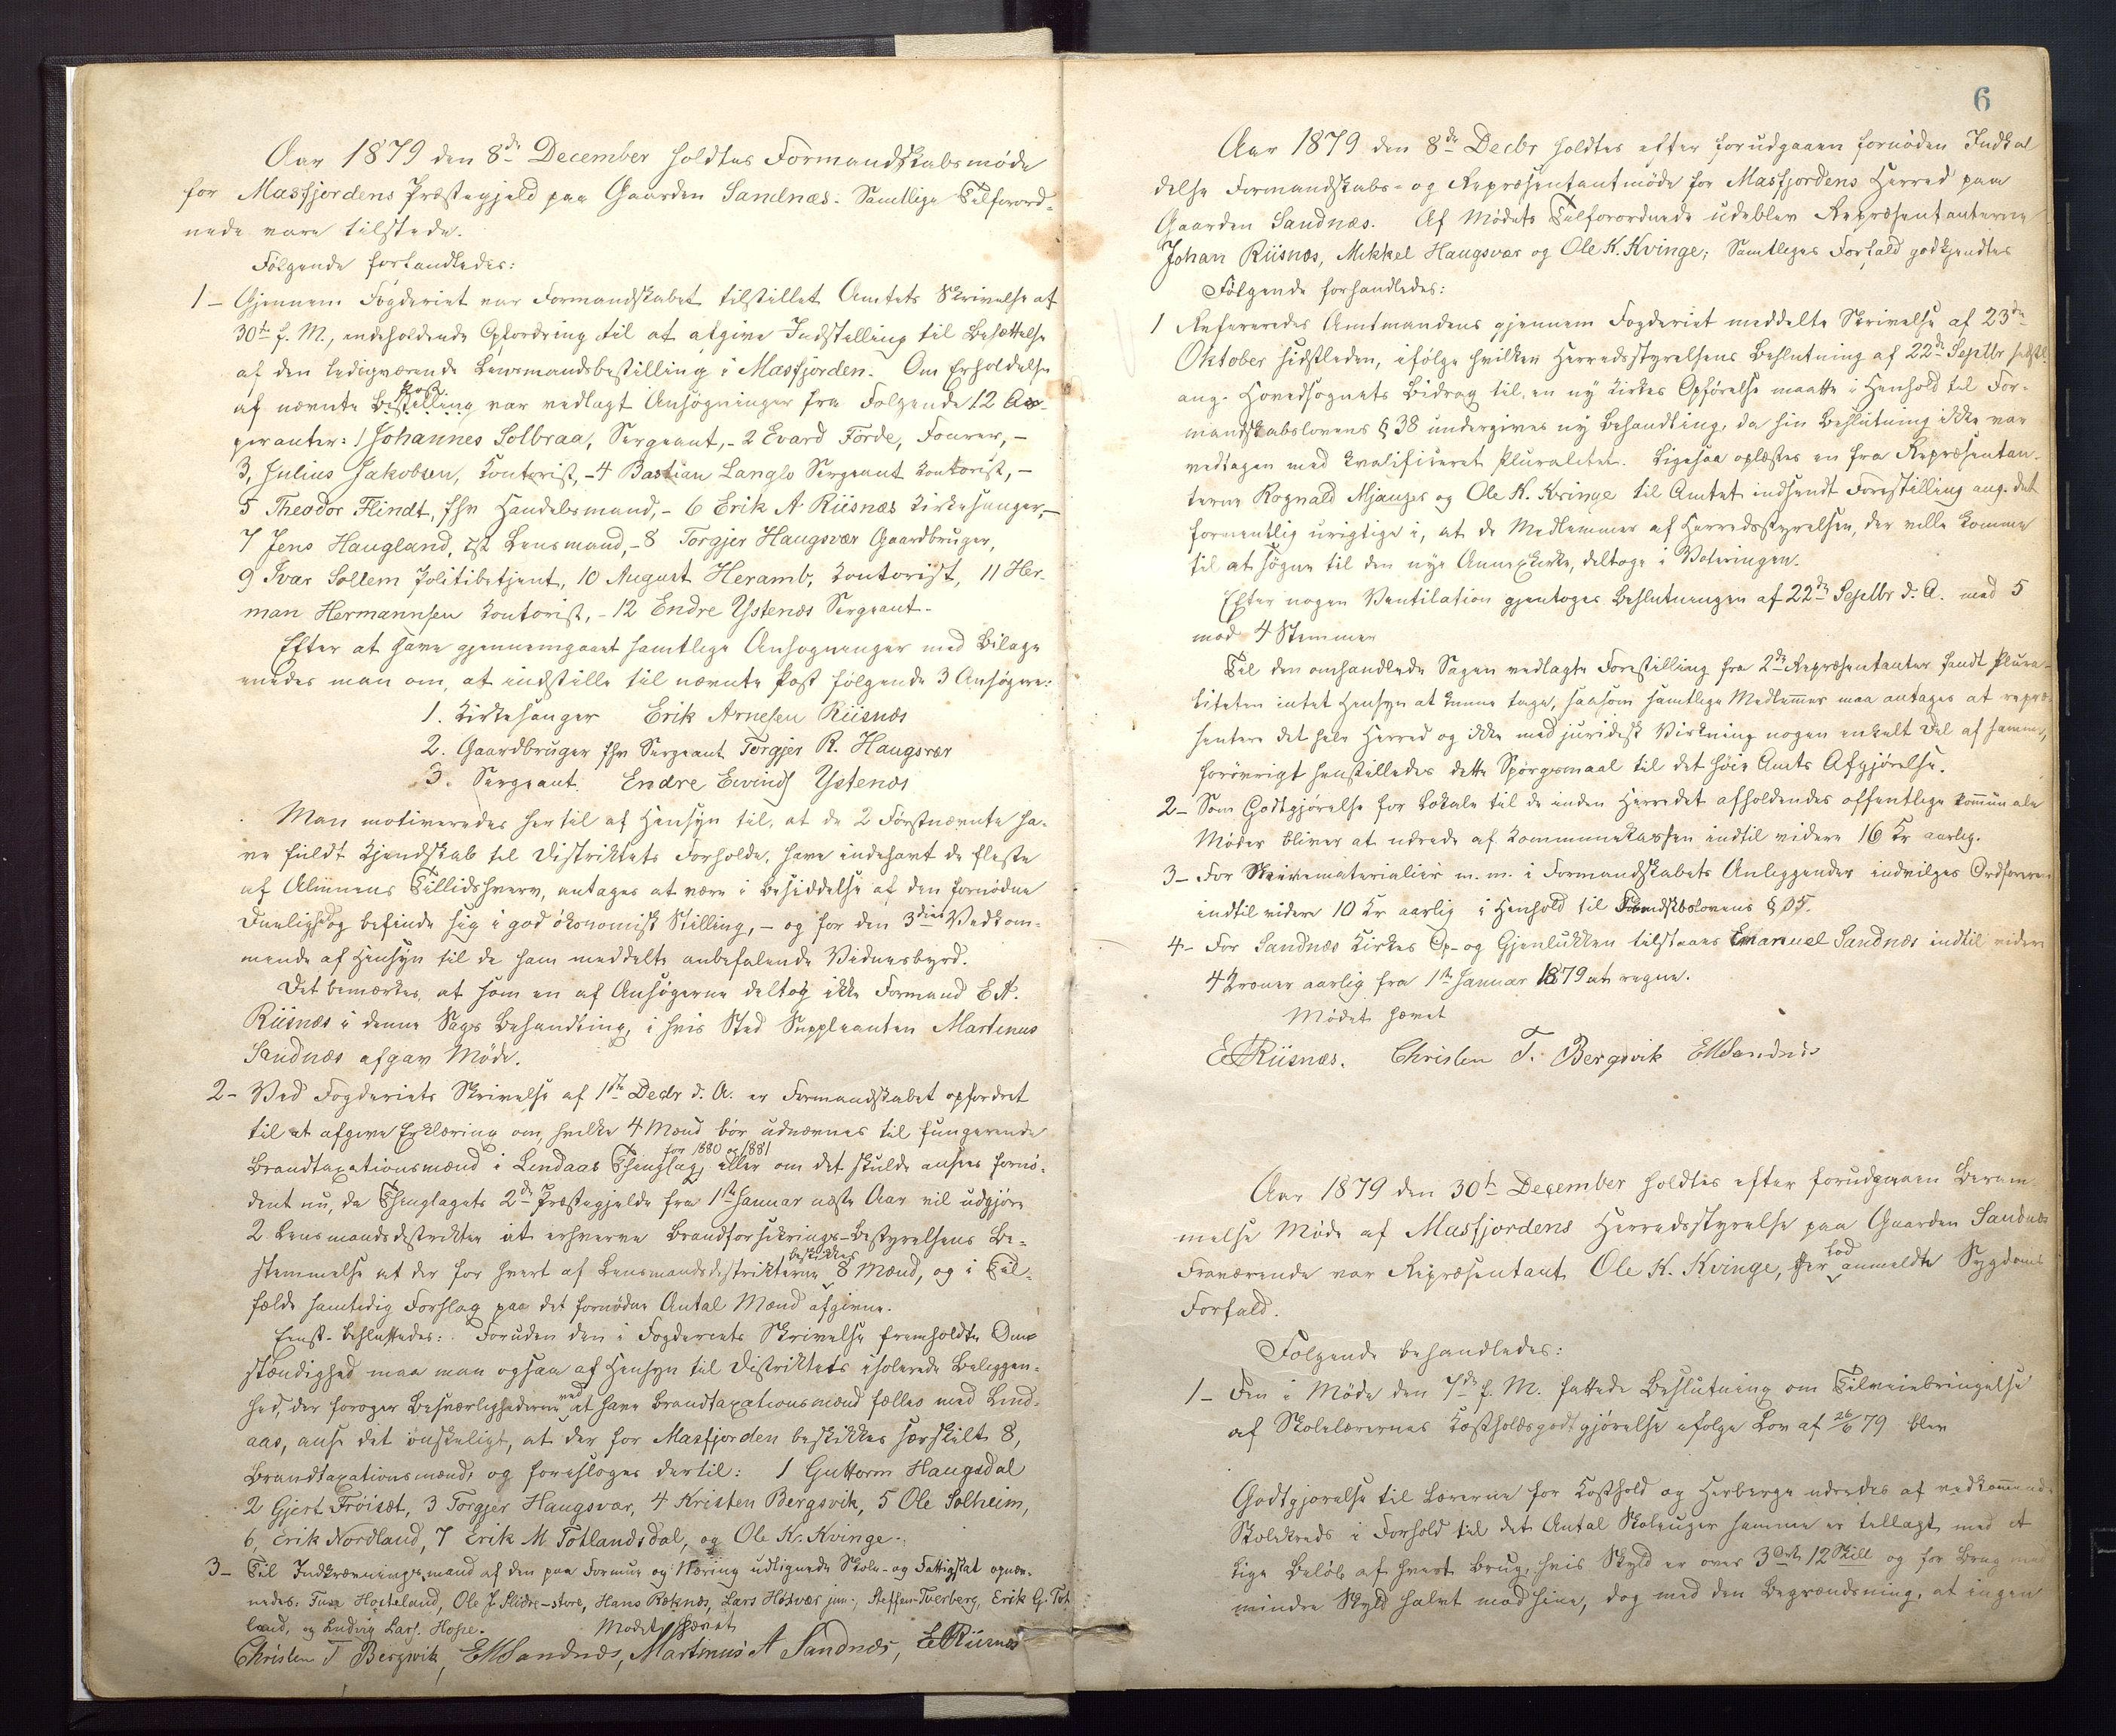 Aar 1879 den 8de December holdtes Formandskabsmøde
for Masfjordens Præstegjeld paa Gaarden Sandnæs. Samtlige Tilforord-
nede vare tilstede.
Følgende forhandledes:
1 - Gjennem Fogderiet var Formandskabet tilstillet Amtets Skrivelse af
30te f. M., indeholdende Opfordring til at afgive Indstilling til Besættelse
af den ledigværende Lensmandsbestilling i Masfjorden. Om Erholdelse
af nævnte Post var vedlagt Ansøgninger fra Følgende 12 As-
piranter: 1 Johannes Solbraa, Sergeant, - 2 Evard Förde, Fourer, -
3, Julius Jakobsen, Kontorist, - 4 Bastian Langlo Sergeant Kontorist, -
5 Theodor Flindt, fhv Handelsmand, - 6 Erik A Riisnæs Kirkesanger, -
7 Jens Haugland, Lensmand, - 8 Torgjer Haugsvær Gaardbruger,
9 Ivar Soltem Politibetjent, 10 August Heramb, Kontorist, 11 Her-
man Hermannsen Kontorist, - 12 Endre Ystenæs Sergeant.
Efter at have gjennemgaaet samtlige Ansøgninger med Bilage
enedes man om, at indstille til nævnte Post følgende 3 Ansøgere:
1. Kirkesanger Erik Arnesen Riisnæs
2. Gaardbruger fhv Sergeant Torgjer R. Haugsvær
3. Sergeant Endre Eivinds Ystenæs
Man motiveredes hertil af Hensyn til, at de 2 Førstnævnte ha-
ve fuldt Kjendskab til Distriktets Forholde, have indehavt de fleste
af Almuens Tillidshverv, antages at være i Besiddelse af den fornødne
Duelighed og befinde sig i god økonomisk Stilling, - og for den 3dies Vedkom-
mende af Hensyn til de ham meddelte anbefalende Vidnesbyrd.
Det bemærkes, at som en af Ansøgerne deltog ikke Formand E A.
Riisnæs i denne Sags Behandling, i hvis Sted Suppleanten Martinus
Sandnæs afgav Møde.
2 - Ved Fogderiets Skrivelse af 1ste Decbr d. A. er Formandskabet opfordret
til at afgive Erklæring om, hvilke 4 Mænd bør udnævnes til fungerende
Brandtaxationsmænd i Lindaas Thinglag for 1880 og 1881, eller om det skulde ansees fornø-
dent nu, da Thinglagets 2de Præstegjelde fra 1ste Januar næste Aar vil udgjøre
2 Lensmandsdistrikter at erhverve Brandforsikrings-Bestyrelsens Be-
stemmelse at der for hvert af Lensmandsdistrikterne beskikkes 8 Mænd, og i Til-
fælde samtidig Forslag paa det fornødne Antal Mænd afgives.
Eenst. besluttedes: Foruden den i Fogderiets Skrivelse fremholdte Om-
stændighed maa man ogsaa af Hensyn til Distriktets isolerede Beliggen-
hed, der forøger Besværlighederne ved at have Brandtaxationsmænd fælles med Lind-
aas, anse det ønskeligt, at der for Masfjorden beskikkes særskilt 8,
Brandtaxationsmænd, og foresloges dertil: 1 Guttorm Haugsdal
2 Gjert Fröisæt, 3 Torgjer Haugsvær, 4 Kristen Bergsvik, 5 Ole Solheim,
6, Erik Nordland, 7 Erik M. Totlandsdal, og Ole K. Kvinge.
3 - Til Indkrævningsmænd af den paa Formue og Næring udlignede Skole- og Fattigskat opnæv-
nedes: Hosteland, Ole J. Slidre-store, Hans Röknæs, Lars Hösvær jun., Steffen Tverberg, Erik G. Tot
land, og Ludvig Lars. Hope. Mødet hævet
Christen T Bergsvik, EMSandnæs, Martinus A Sandnæs, EARiisnæs

6
Aar 1879 den 8de Decbr holdtes efter forudgaaen fornøden Indkal
delse Formandskabs- og Repræsentantmøde for Masfjordens Herred paa
Gaarden Sandnæs. Af Mødets Tilforordnede udeblev Repræsentanterne
Johan Riisnæs, Mikkel Haugsvær og Ole K. Kvinge; Samtliges Forfald godkjendtes
Følgende forhandledes:
1 Refereredes Amtmandens gjennem Fogderiet meddelte Skrivelse af 23de
Oktober sidstleden, ifølge hvilken Herredsstyrelsens Beslutning af 22de Septbr sidstl.
ang. Hovedsognets Bidrag til en ny Kirkes Opførelse maatte i Henhold til For-
mandskabslovens § 38 undergives ny Behandling, da hin Beslutning ikke var
vedtagen med kvalificeret Pluralitet. Ligesaa oplæstes en fra Repræsentan-
terne Rognald Mjanger og Ole K. Kvinge til Amtet indsendt Forestilling ang. det
formentlig urigtige i, at de Medlemmer af Herredsstyrelsen, der ville komme
til at søgne til den nye Annexkirke, deltoge i Voteringen.
Efter nogen Ventilation gjentoges Beslutningen af 22de Septbr d. A. med 5
mod 4 Stemmer
Til den omhandlede Sagen vedlagte Forestilling fra 2de Repræsentanter fandt Plura-
liteten intet Hensyn at kunne tage, saasom samtlige Medlemmer maa antages at repræ-
sentere det hele Herred og ikke med juridisk Virkning nogen enkelt Del af samme,
forøvrigt henstilledes dette Spørgsmaal til det høie Amts Afgjørelse.
2 - Som Godtgjørelse for Lokale til de inden Herredet afholdendes offentlige kommunale
Møder bliver at udrede af Kommunekassen indtil videre 16 Kr aarlig.
3 - For Skrivematerialier m. m. i Formandskabets Anliggender indvilges Ordføreren
indtil videre 10 Kr aarlig i Henhold til Formdskbslovens §
4 - For Sandnæs Kirkes Op- og Gjenlukken tilstaaes Emanuel Sandnæs indtil videre
4 Kroner aarlig fra 1ste Januar 1879 at regne.
Mødet hævet
EARiisnæs. Christen T. Bergsvik EMSandnæs

Aar 1879 den 30te December holdtes efter forudgaaen Beram-
melse Møde af Masfjordens Herredsstyrelse paa Gaarden Sandnæs
Fraværende var Repræsentant Ole K. Kvinge, der lod anmeldte Sygdoms
Forfald.
Følgende behandledes:
1 - Den i Møde den 7de f. M. fattede Beslutning om Tilveiebringelse
af Skolelærernes Kostholdsgodtgjørelse ifølge Lov af 26/6 79 blev
Godtgjørelse til Lærerne for Kosthold og Herberge udredes af vedkommende
Skolekreds i Forhold til det Antal Skoleuger samme er tillagt med et
lige Beløb af hvert Brug, hvis Skyld er over 3 Ort 12 Skill og for Brug med
mindre Skyld halvt mod hine, dog med den Begrændsning, at ingen